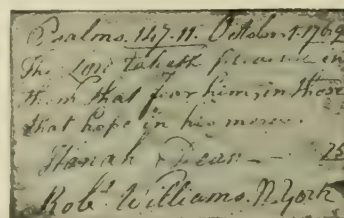 Psalms. 147.11. October 1. 1769
The Lord taketh pleasure in
them that fear him, in those
that hope in his mercy.
Hanah Dean — 25
Robt Williams. N. York